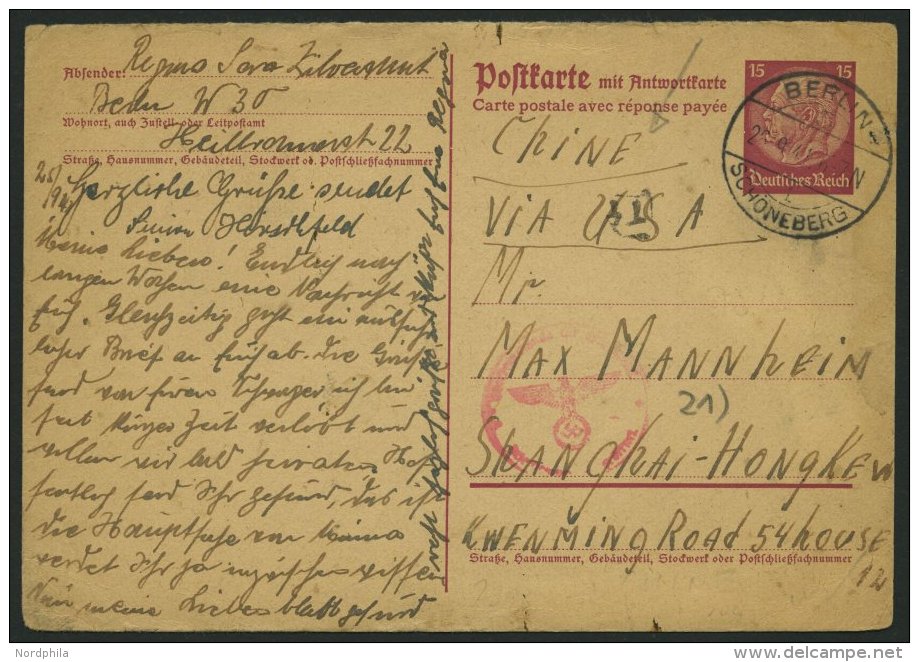 Absender: Regina Sara Zilverschmit
Berlin W 30
Wohnort, auch Zustell- oder Leitpostamt
Heilbronnerst 22
Straße, Hausnummer, Gebäudeteil, Stockwerk od. Postschließfachnummer
Herzliche Grüße sendet
Simon Hirschfeld
Meine Lieben! Endlich nach
langen Wochen eine Nachricht v.
Euch. Gleichzeitig geht ein ausführ
licher Brief an Euch ab. Die Grüße
sind von Schwager ich bin
seit kurzer Zeit verlobt und
wollen wir bald heiraten. Hof
fentlich seid Ihr gesund, das ist
die Hauptsache von Mama
werdet Ihr ja inzwischen wissen
Nun meine Lieben bleibt gesund
Regina
Postkarte mit Antwortkarte
Carte postale avec réponse payée
15 15
Deutsches Reich
BERLIN-
SCHÖNEBERG
CHINE
VIA USA
Mr.
MAX MANNHEIM
21)
SHANGHAI-HONGKEW
KWENMING Road 54 house
Straße, Hausnummer, Gebäudeteil, Stockwerk oder Postschließfachnummer
12
Nordphila
delcampe.net